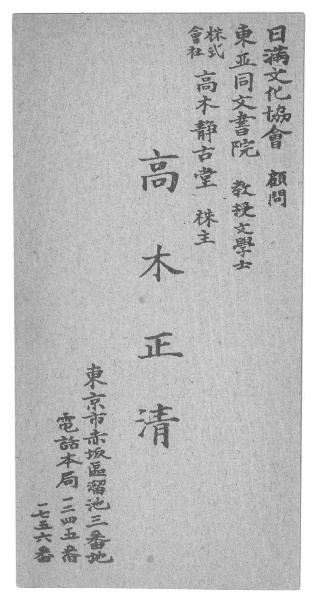 日滿文化協會 顧問
東亞同文書院 教授文學士
株式會社 高木靜古堂 株主
高木正清
東京市赤坂區溜池三番地
電話本局一二四五番
一七五六番